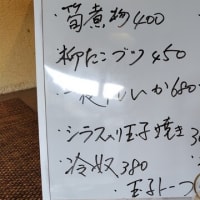 ・筍煮物400
柳たこブツ450
いか680
・シラス入り玉子焼き3
・冷奴380
・玉子トーフ